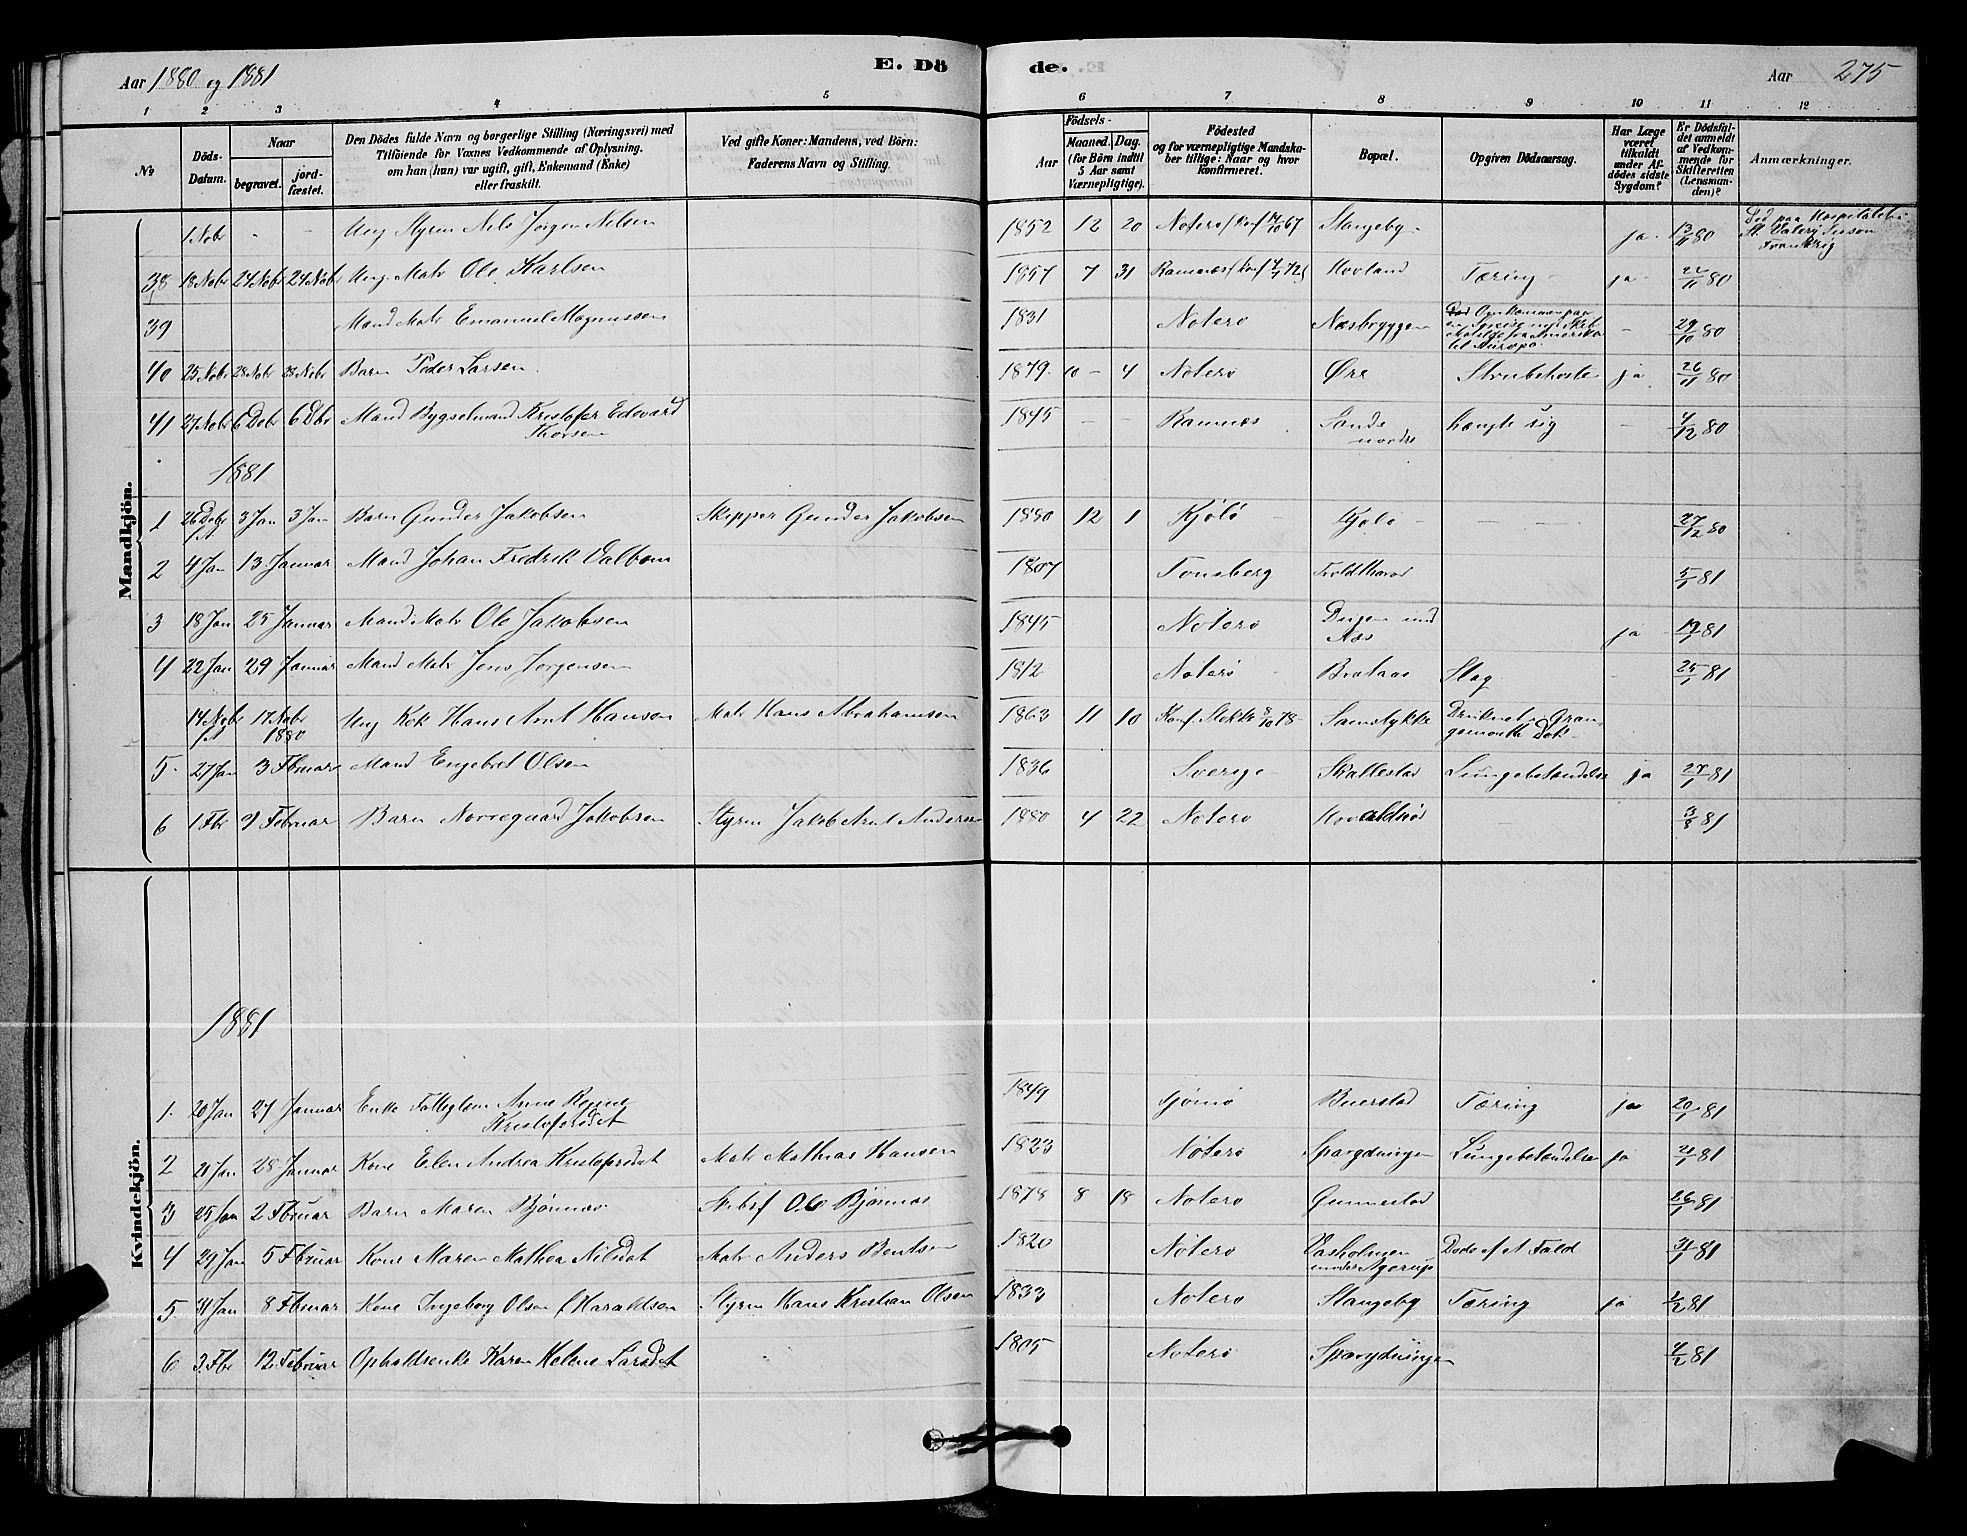 Aar 1880 og 1881
E. Dö
de.
Aar 275
1 2 3 4 5 6 7 8 9 10 11 12
No
Döds-Datum.
Naar
begravet.
jord-fæstet.
Den Dödes fulde Navn og borgerlige Stilling (Næringsvei) med
Tilföiende for Voxnes Vedkommende af Oplysning.
om han (hun) var ugift, gift, Enkemand (Enke)
eller fraskilt.
Ved gifte Koner: Mandens, ved Börn:
Faderens Navn og Stilling.
Födsels-
Aar
Maaned. Dag.
(for Börn indtil
5 Aar samt
Værnepligtige).
Födested
og for værnepligtige Mandska-
ber tillige: Naar og hvor
konfirmeret.
Bopæl.
Opgiven Dödsaarsag.
Har Læge
været
tilkaldt
under Af-
dödes sidste
Sygdom?
Er Dödsfal-
det anmeldt
af Vedkom-
mende for
Skifteretten
(Lensman-
den)?
Anmærkninger.
Mandkjön.
1 Nobr - - Ung Styrm Nils Jørgen Nilsen 1852 12 20 Noterø (Konf 14/10 67 Stangeby - ja - 13/11 80 Død paa Hospitalet i
St. Valery
Frankrig
38 18 Nobr 24 Nobr 24 Nobr Ung Matr Ole Karlsen 1857 7 31 Ramnæs (Konf 72) Hovland Tæring - ja - 22/11 80
39 Mand Matr Emanuel Magnussen 1831 Noterø Næsbryggen Død Omkommen paa
en Reise med Skib
fra Amerika
til Europa. - 29/10 80
40 25 Nobr 28 Nobr 28 Nobr Barn Peder Larsen. 1879. 10 - 4 Noterø Øre Strubehoste ja 26/11 80
41 27 Nobr 6 Dbr 6 Dbr Mand Bygselmand Kristofer Edvard
Thorsen 1845 - - Ramnæs Sande
nordre hængte sig - 4/12 80
1881
1 26 Dbr 3 Jan 3 Jan Barn Gunder Jakobsen Skipper Gunder Jakobsen 1880 12 1 Kjølø - Kjølø - - - - 27/12 80
2 4 Jan 13 Januar Mand Johan Fredrik Dalbom 1807 Tønsberg 5/1 81
3 18 Jan 25 Januar Mand Matr Ole Jakobsen 1845 Noterø ja - 19/1 81
4 22 Jan 29 Januar Mand Matr Jens Jørgensen 1812 Noterø - Brataas Slag - 25/1 81
14 Nobr 17 Nobr
1880 Ung Kok Hans Arnt Hansen Matr Hans Abrahamsen 1863 11 10 Konf. Stokke 8/10 78 - Samstykke Druknet i Gran-
gemouth Dok -
5. 27 Jan 3 Fbruar Mand Engebret Olsen 1836 Sverige - Skallestad Lungebetændelse ja 27/1 81
6 1 Fbr 9 Februar Barn Norregaard Jakobsen Styrm Jakob Arnt Andersen 1880 4 22 Noterø - 3/2 81
Kvindekjön.
1881
1. 20 Jan 27 Januar Enke Anne
Kristofersdat 1849 Tjømø Buerstad Tæring ja 20/1 81
2 20 Jan 28 Januar Kone Elen Andrea Kristofersdat Matr Mathias Hansen 1823 Nøterø Lungebetændelse ja 21/1 81
3 25 Jan 2 Fbruar Barn Maren Bjønnæs Ole Bjønnæs 1878 8 18 Noterø Gunnestad 26/1 81
4 29 Jan 5 Fbruar Kone Maren Mathea Nilsdat Matr Anders Berntsen 1820 Nøterø Vasholmen
under Agerup Døde af et Fald 31/1 81
5. 31 Jan 8 Fbruar Kone Ingeborg Olsen f Haraldsen Styrm Hans Kristian Olsen 1833 Noterø Stangeby Tæring ja 1/2 81
6 3 Fbr 12 Februar Opholdsenke Karen Helene Larsdat 1805 Noterø 4/2 81